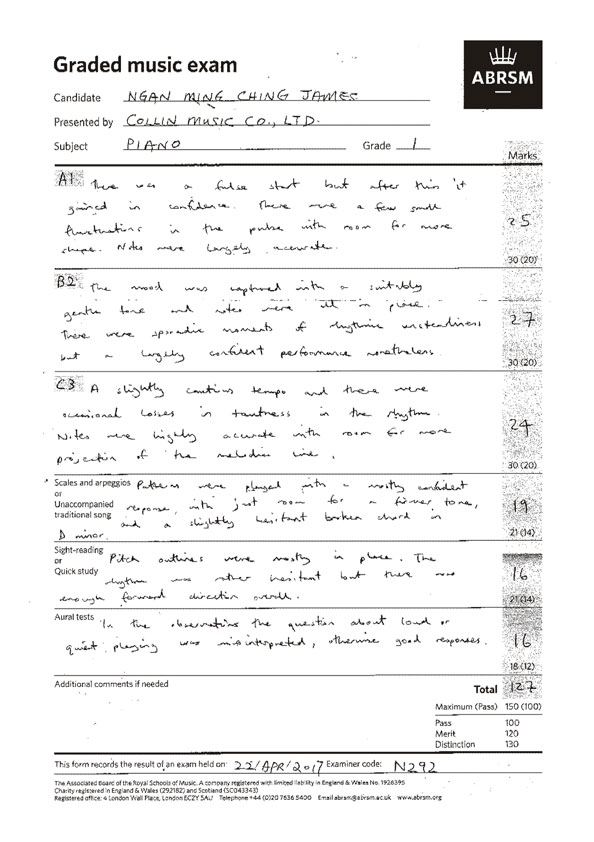 Graded music exam
ABRSM
Candidate NGAN MING CHING JAMES
Presented by COLLIN MUSIC CO., LTD.
Subject PIANO Grade 1
Marks
A1 There was a false start but after this it
gained in confidence. There were a few small
fluctuations in the pulse with room for more
shape. Notes were largely accurate.
25
30 (20)
B2 The mood was captured with a suitably
gentle tone and notes were all in place.
There were sporadic moments of rhythmic unsteadiness
but a largely confident performance nonetheless.
27
30 (20)
C3 A slightly cautious tempo and there were
occasional losses in tautness in the rhythm.
Notes were highly accurate with room for more
projection of the melodic line.
24
30 (20)
Scales and arpeggios
or
Unaccompanied
traditional song
Patterns were played with a mostly confident
response, with just room for a firmer tone,
and a slightly hesitant broken chord in
D minor.
19
21 (14)
Sight-reading
or
Quick study
Pitch outlines were mostly in place. The
rhythm was rather hesitant but there was
enough forward direction overall.
16
21 (14)
Aural tests In the observations the question about loud or
quiet playing was misinterpreted, otherwise good responses.
16
18 (12)
Additional comments if needed
Total 127
Maximum (Pass) 150 (100)
Pass 100
Merit 120
Distinction 130
This form records the result of an exam held on: 22/APR/2017 Examiner code: N292
The Associated Board of the Royal Schools of Music. A company registered with limited liability in England & Wales No. 1926395
Charity registered in England & Wales (292182) and Scotland (SC043343)
Registered office: 4 London Wall Place, London EC2Y 5AU Telephone +44 (0)20 7636 5400 Email abrsm@abrsm.ac.uk www.abrsm.org